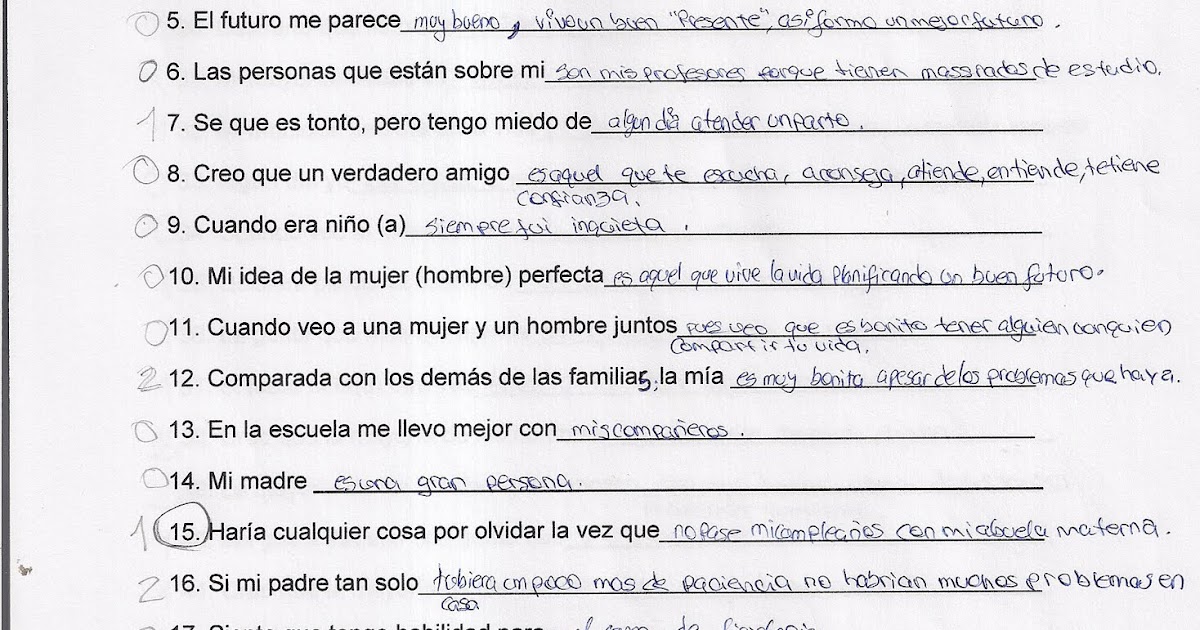 0 5. El futuro me parece muy bueno, vive un buen "Presente", asi formo un mejor futuro.
0 6. Las personas que están sobre mi son mis profesores porque tienen mas grados de estudio.
1 7. Se que es tonto, pero tengo miedo de algun dia atender un parto.
0 8. Creo que un verdadero amigo es aquel que te escucha, aconseja, atiende, entiende, te tiene
confianza.
0 9. Cuando era niño (a) siempre fui inquieta.
0 10. Mi idea de la mujer (hombre) perfecta es aquel que vive la vida planificando un buen futuro.
0 11. Cuando veo a una mujer y un hombre juntos pues veo que es bonito tener alguien con quien
compartir tu vida.
2 12. Comparada con los demás de las familias, la mía es muy bonita apesar de los problemas que haya.
0 13. En la escuela me llevo mejor con mis compañeros.
0 14. Mi madre es una gran persona.
1 15. Haría cualquier cosa por olvidar la vez que no pase mi cumpleaños con mi abuela materna.
2 16. Si mi padre tan solo tubiera un poco mas de paciencia no habrian muchos problemas en
casa
17. Siento que tengo habilidad para